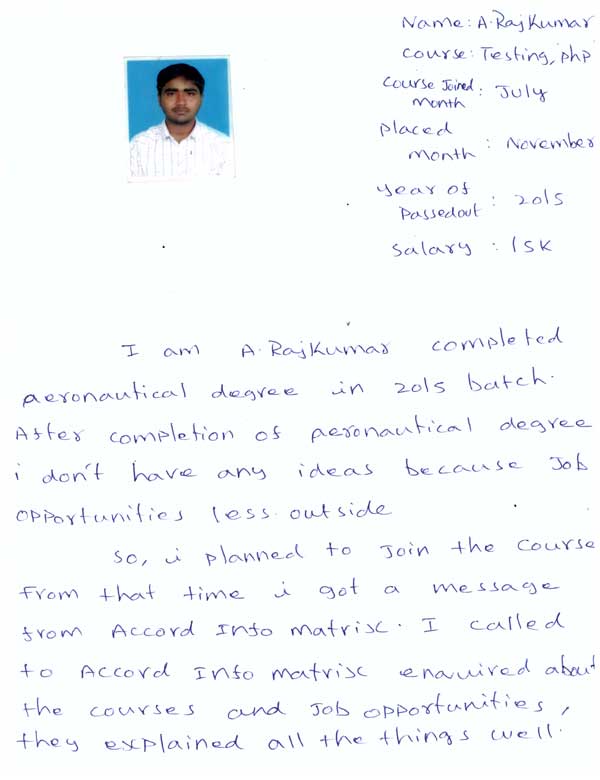 Name: A.RajKumar
Course: Testing, php
Course Joined
month : July
Placed
month : November
year of
Passedout : 2015
Salary : 15K
I am A.RajKumar completed
aeronautical degree in 2015 batch.
After completion of aeronautical degree
i don't have any ideas because Job
opportunities less outside
So, i planned to Join the Course
From that time i got a message
from Accord Info matrix. I called
to Accord Info matrix enquired about
the courses and Job opportunities,
they explained all the things well.